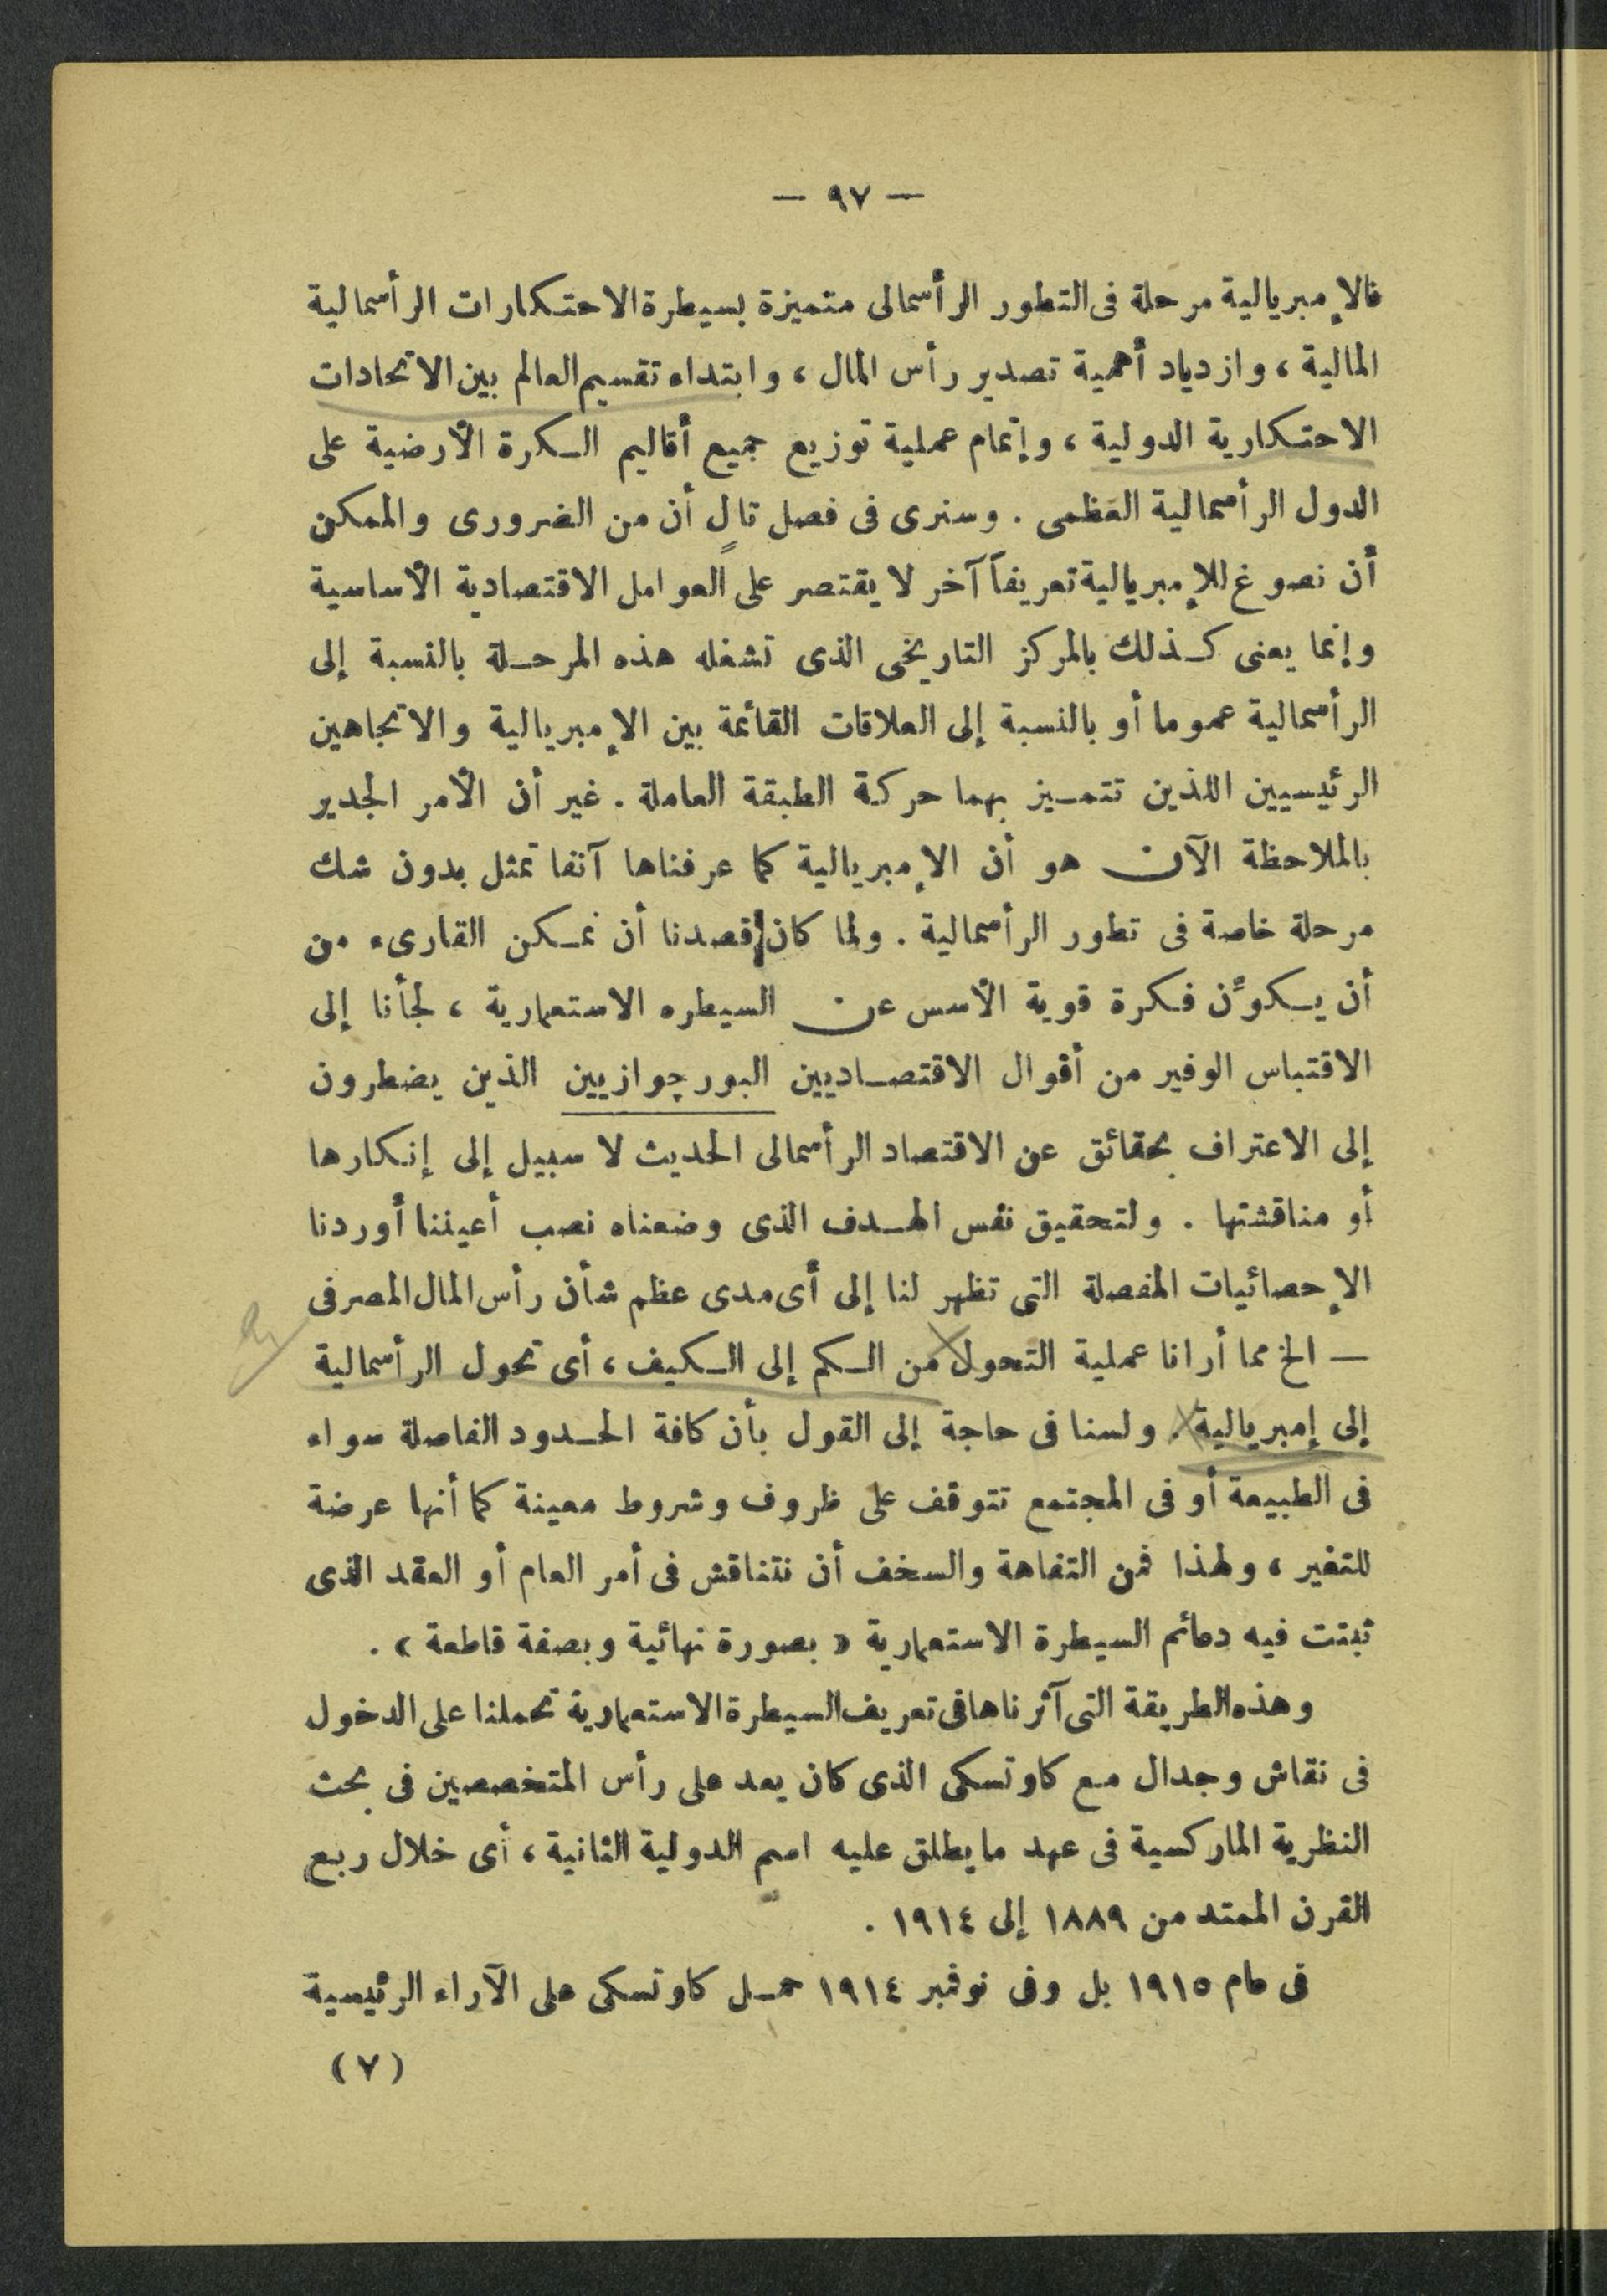 — ٩٧ —
فالإمبريالية مرحلة فى التطور الرأسمالى متميزة بسيطرة الاحتكارات الرأسمالية
المالية ، وازدياد أهمية تصدير رأس المال ، وابتداء تقسيم العالم بين الاتحادات
الاحتكارية الدولية ، وإتمام عملية توزيع جميع أقاليم الكرة الأرضية على
الدول الرأسمالية العظمى . وسنرى فى فصل تالٍ أن من الضرورى والممكن
أن نصوغ للإمبريالية تعريفاً آخر لا يقتصر على العوامل الاقتصادية الأساسية
وإنما يعنى كذلك بالمركز التاريخى الذى تشغله هذه المرحلة بالنسبة إلى
الرأسمالية عموما أو بالنسبة إلى العلاقات القائمة بين الإمبريالية والاتجاهين
الرئيسيين اللذين تتميز بهما حركة الطبقة العاملة . غير أن الأمر الجدير
بالملاحظة الآن هو أن الإمبريالية كما عرفناها آنفا تمثل بدون شك
مرحلة خاصة فى تطور الرأسمالية . ولما كان قصدنا أن نمكن القارىء من
أن يكوِّن فكرة قوية الأسس عن السيطره الاستعمارية ، لجأنا إلى
الاقتباس الوفير من أقوال الاقتصاديين البورچوازيين الذين يضطرون
إلى الاعتراف بحقائق عن الاقتصاد الرأسمالى الحديث لا سبيل إلى إنكارها
أو مناقشتها . ولتحقيق نفس الهدف الذى وضعناه نصب أعيننا أوردنا
الإحصائيات المفصلة التى تظهر لنا إلى أى مدى عظم شأن رأس المال المصرفى
— الخ مما أرانا عملية التحول من الكم إلى الكيف ، أى تحول الرأسمالية
إلى إمبريالية . ولسنا فى حاجة إلى القول بأن كافة الحدود الفاصلة سواء
فى الطبيعة أو فى المجتمع تتوقف على ظروف وشروط معينة كما أنها عرضة
للتغير ، ولهذا فمن التفاهة والسخف أن نتناقش فى أمر العام أو العقد الذى
ثبتت فيه دعائم السيطرة الاستعمارية « بصورة نهائية وبصفة قاطعة » .
وهذه الطريقة التى آثرناها فى تعريف السيطرة الاستعمارية تحملنا على الدخول
فى نقاش وجدال مع كاوتسكى الذى كان يعد على رأس المتخصصين فى بحث
النظرية الماركسية فى عهد ما يطلق عليه اسم الدولية الثانية ، أى خلال ربع
القرن الممتد من ١٨٨٩ إلى ١٩١٤ .
فى عام ١٩١٥ بل وفى نوفمبر ١٩١٤ حمل كاوتسكى على الآراء الرئيسية
(٧)